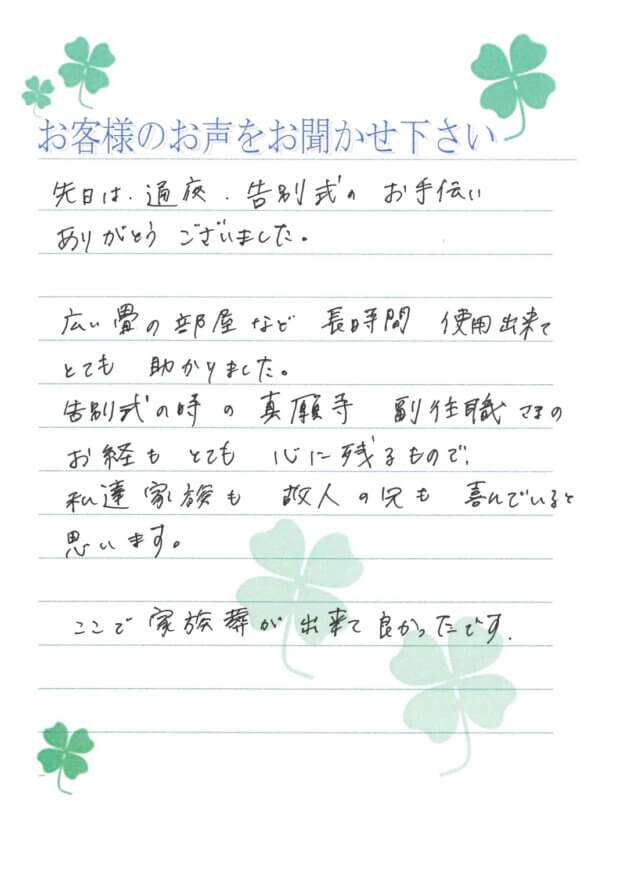 お客様のお声をお聞かせ下さい
先日は、通夜、告別式の お手伝い
ありがとう ございました。
広い畳の部屋など 長時間 使用出来て
とても 助かりました。
告別式の時の真願寺 副住職さまの
お経も とても 心に残るもので、
私達家族も 故人の兄も 喜んでいると
思います。
ここで家族葬が出来て良かったです.